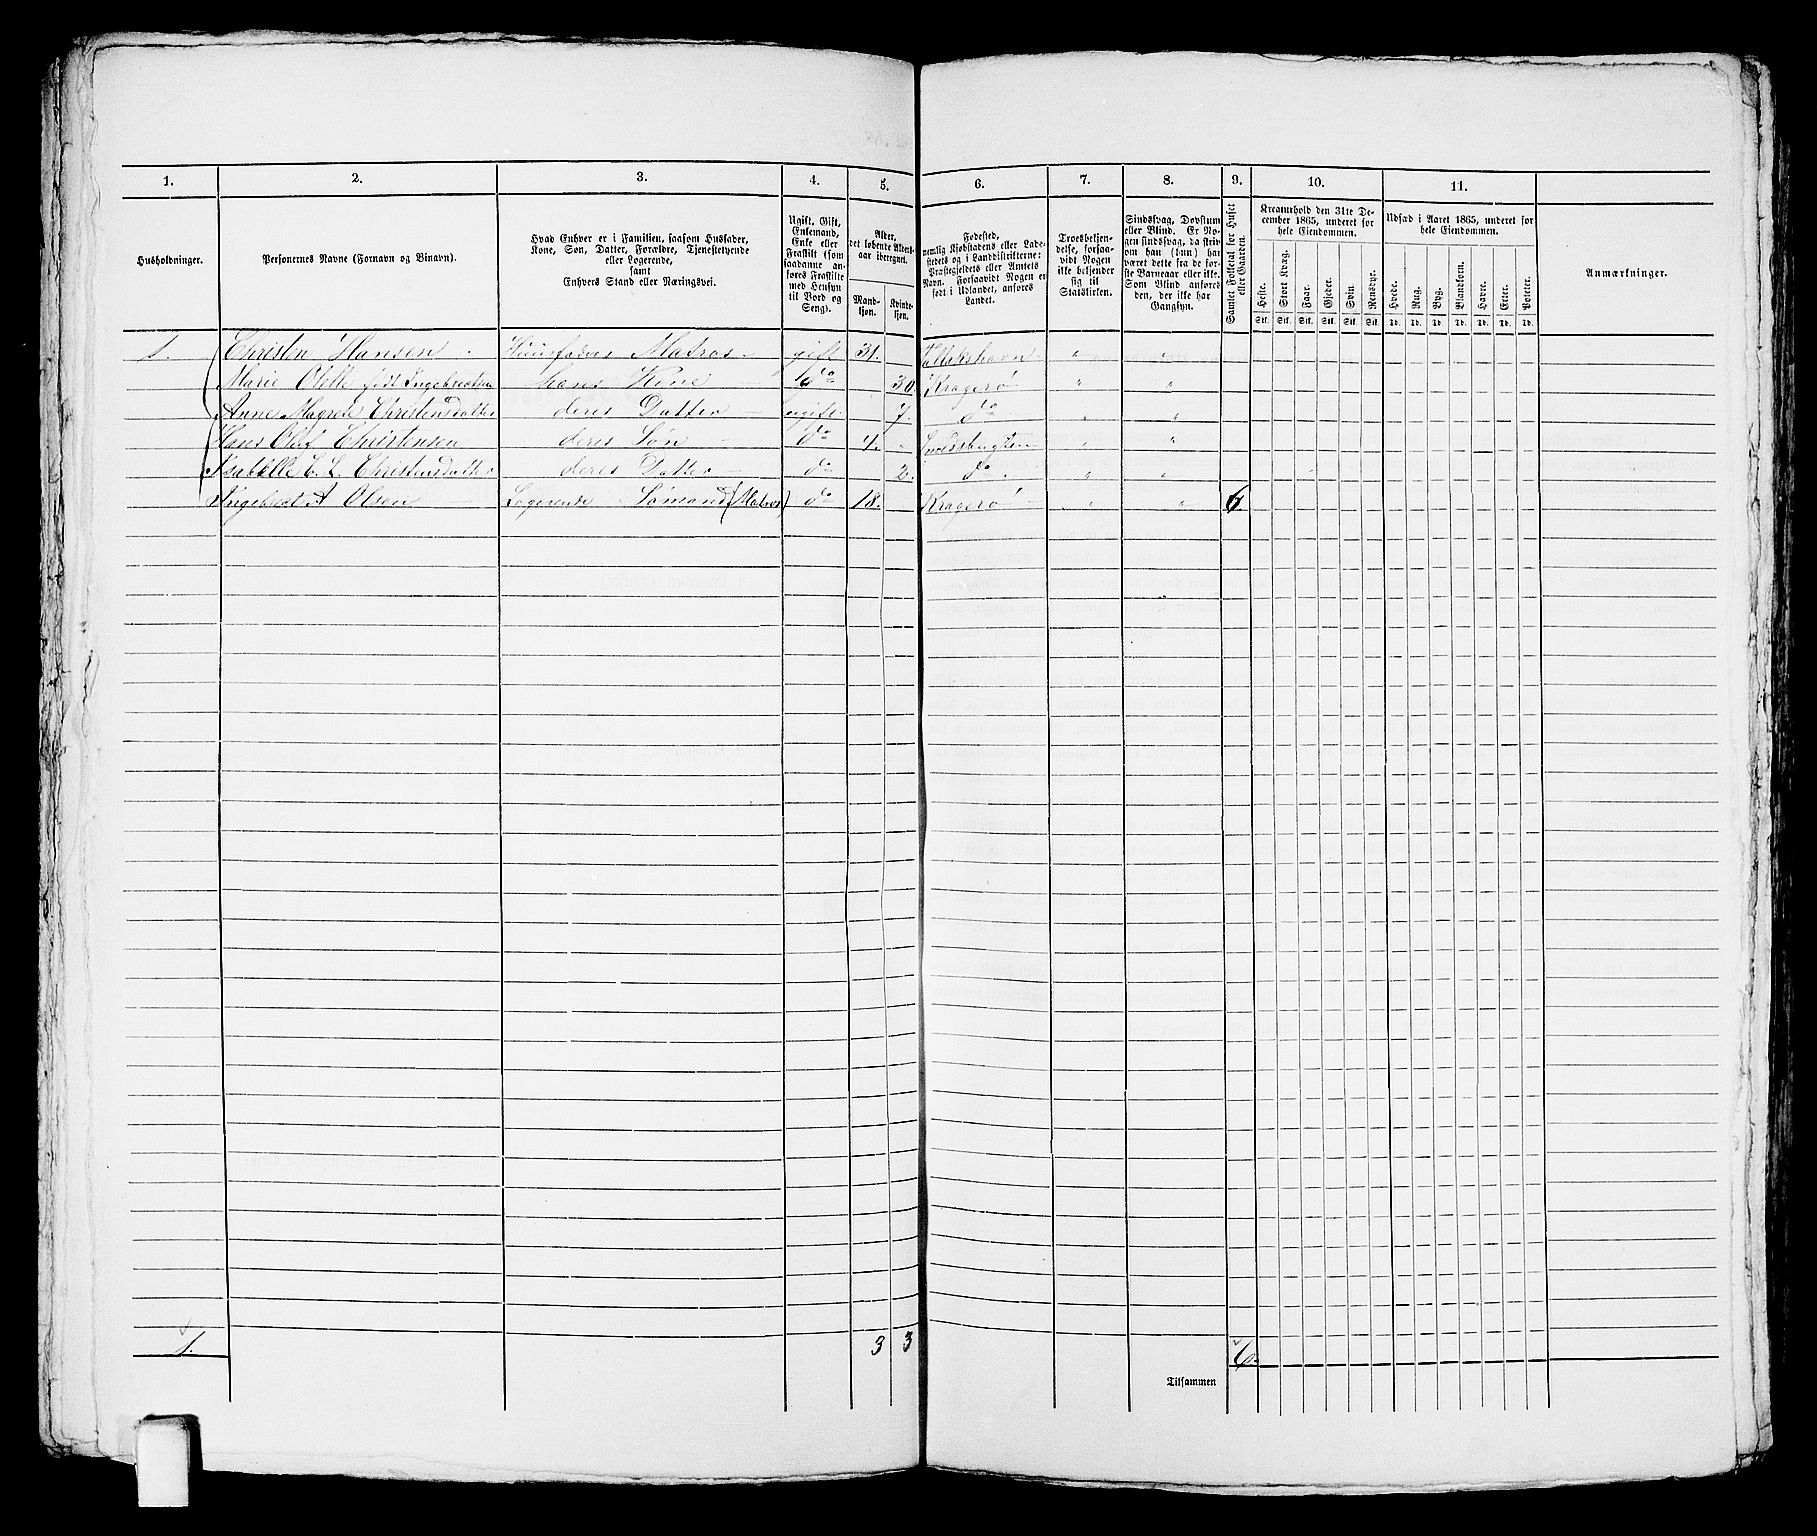 1. 2. 3. 4. 5. 6. 7. 8. 9. 10. 11.
Husholdninger.
Personernes Navne (Fornavn og Binavn).
Hvad Enhver er i Familien, saasom Husfader,
Kone, Søn, Datter, Forældre, Tjenestetyende
eller Logerende,
samt
Enhvers Stand eller Næringsvei.
Ugift, Gift,
Enkemand,
Enke eller
Fraskilt (som
saadanne an-
føres Fraskilte
med Hensyn
til Bord og
Seng).
Alder,
det løbende Alders-
aar iberegnet.
Mand-
kjøn.
Kvinde-
kjøn.
Fødested,
nemlig Kjøbstadens eller Lade-
stedets og i Landdistrikterne:
Præstegjeldets eller Amtets
Navn. Forsaavidt Nogen er
født i Udlandet, anføres
Landet.
Troesbekjen-
delse, forsaa-
vidt Nogen
ikke bekjender
sig til
Statskirken.
Sindssvag, Døvstum
eller Blind. Er No-
gen sindssvag, da skriv
om han (hun) har
været dette fra de før-
ste Barneaar eller ikke.
Som Blind anføres
den, der ikke har
Gangsyn.
Samlet Folketal for Huset
eller Gaarden.
Kreaturhold den 31te De-
cember 1865, underet for
hele Eiendommen.
Heste. Stort Kvæg. Faar. Gjeder. Svin. Rensdyr.
Stk. Stk. Stk. Stk. Stk. Stk.
Udsæd i Aaret 1865, underet for
hele Eiendommen.
Hvede. Rug. Byg. Blandkorn. Havre. Erter. Poteter.
Td. Td. Td. Td. Td. Td. Td.
Anmærkninger.
1. Christen Hansen Huusfader Matros gift 31. Tallakshavn " "
Marie Olette født Ingebretsen hans Kone do 30. Kragerø " "
Anne Magrete Christensdatter deres Datter ugift 7. do " "
Hans Oluf Christensen deres Søn do 4. " "
Isabelle C. L. Christensdatter deres Datter do 2. do " "
Ingebret A Olsen Logerende Sømand (Matros) do 18. Kragerø " " 6
1. 3 3 6.
Tilsammen